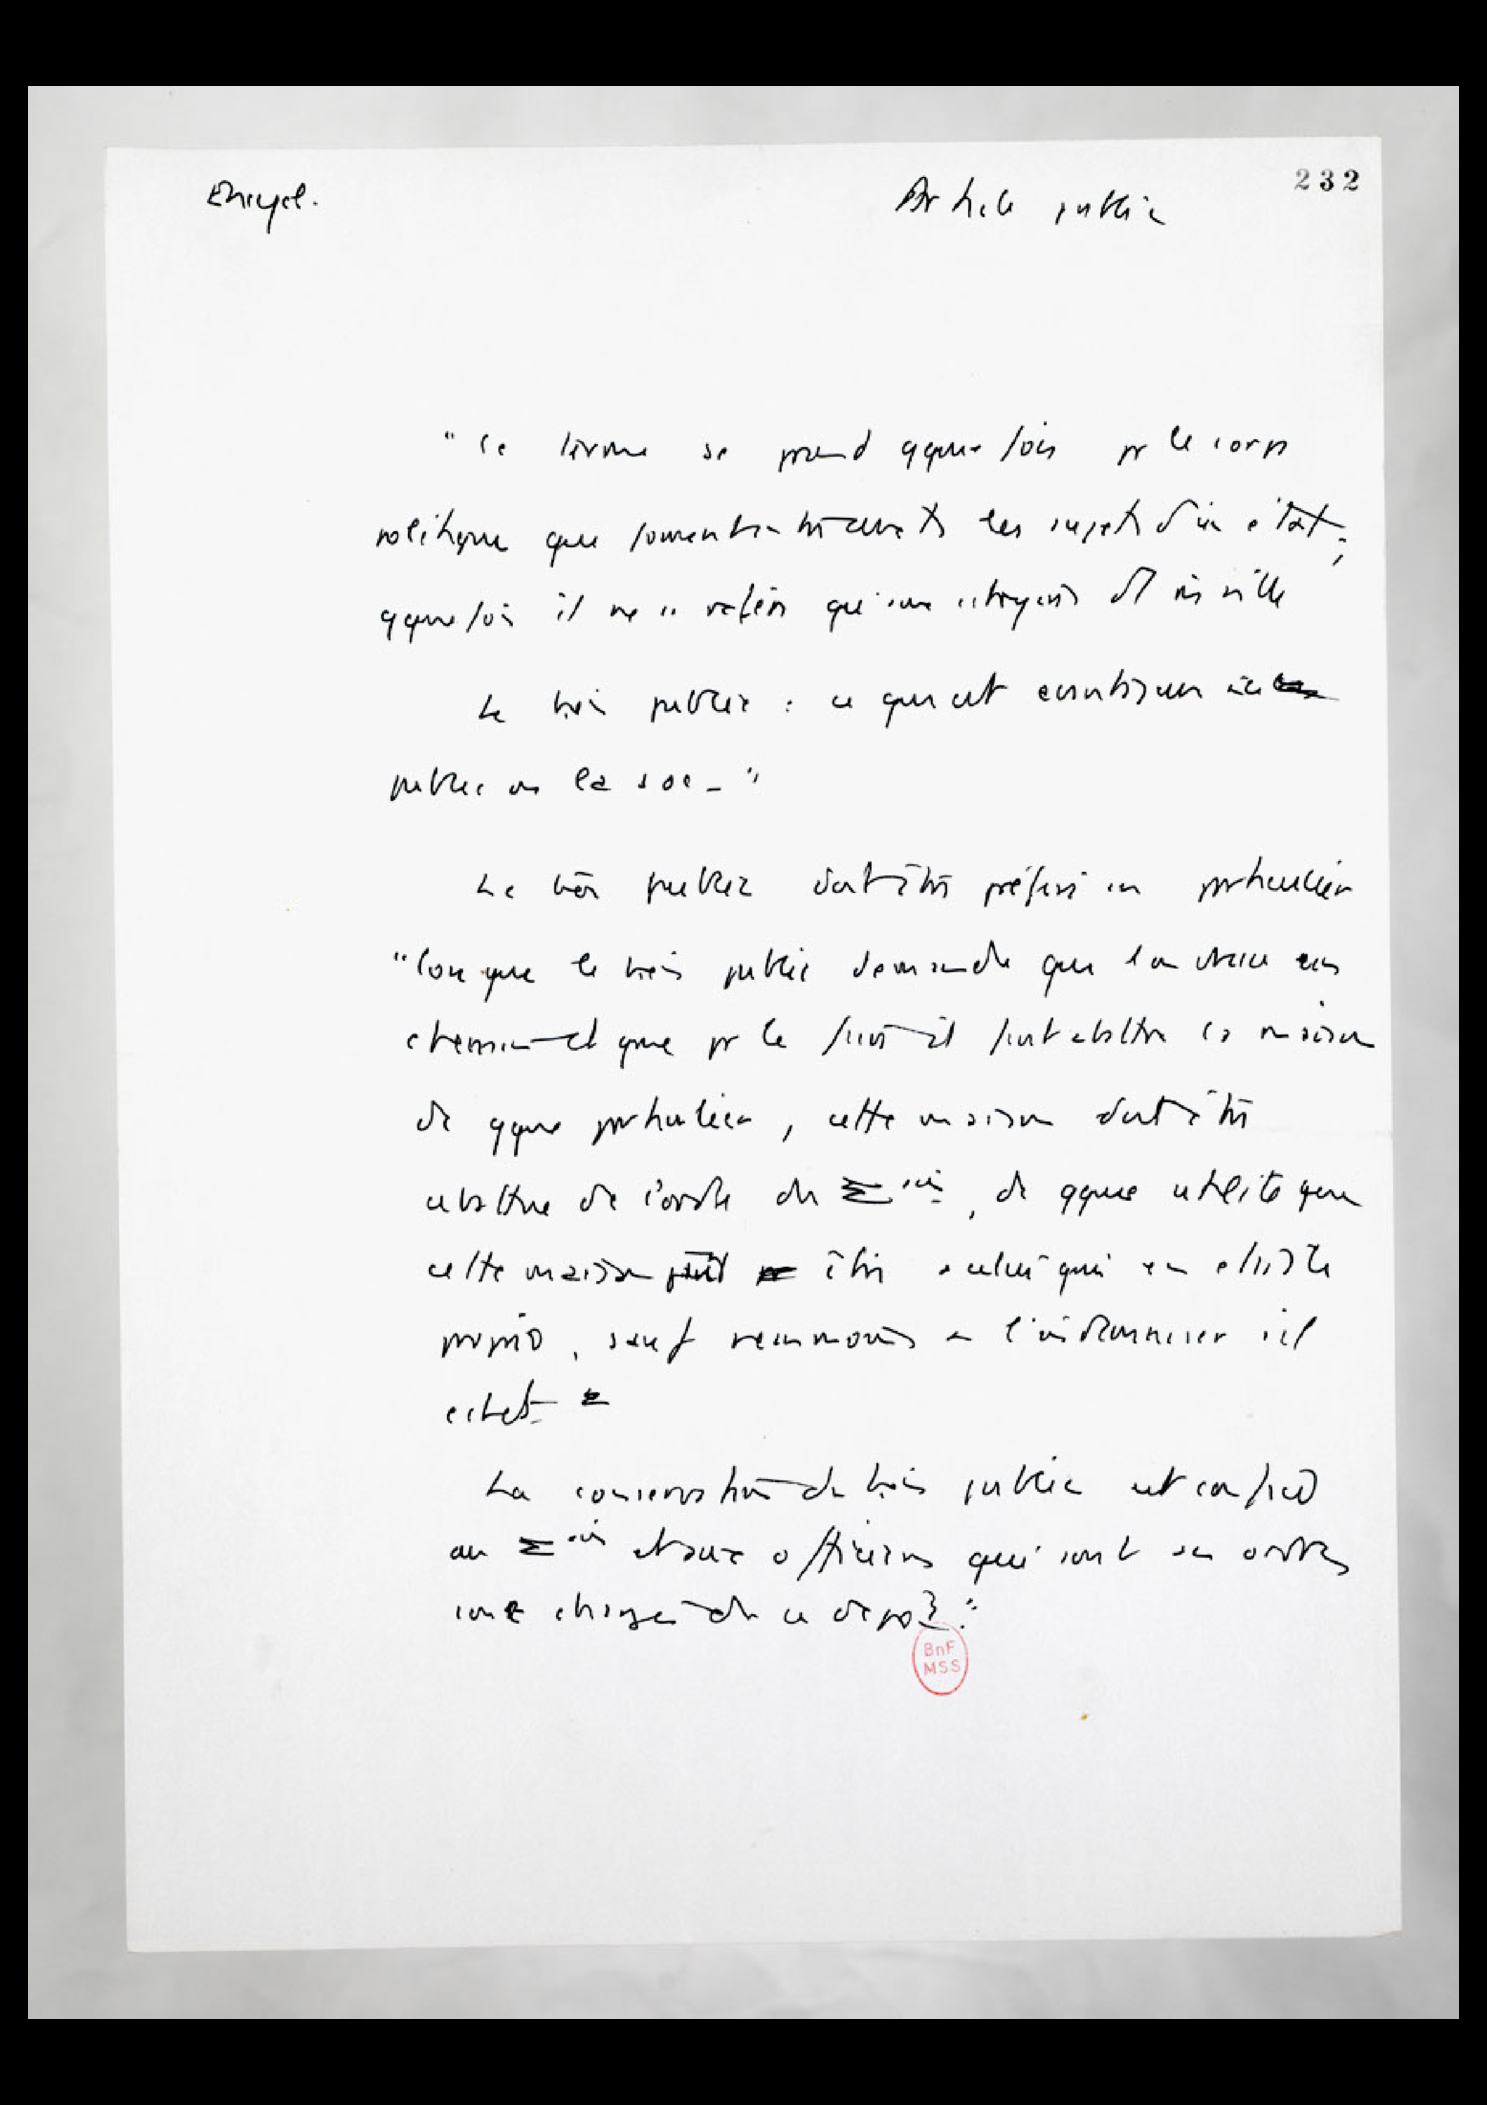 232
Encycl. Article public
"Ce terme se prend qque fois pr le corps
politique que forment entre eux ts les sujets d'un état;
qque fois il ne se réfère qu'aux citoyens d'1 même ville
Le bien public : ce qui est avantageux au
public ou la soc-"
Le bien public doit être préféré au particulier
"lorsque le bien public demande que l'on un
chemin et que pr le il faut abattre la maison
de qque particulier, cette maison doit être
abattue de l'ordre du Σain, de qque utilité que
cette maison puisse être à celui qui en est le
proprio, sauf néanmoins à l'indemniser s'il
échet
La conservation du bien public est confiée
au Σain et aux officiers qui sont sous ses ordres
sont chargés de ce dépôt".
BnF
MSS